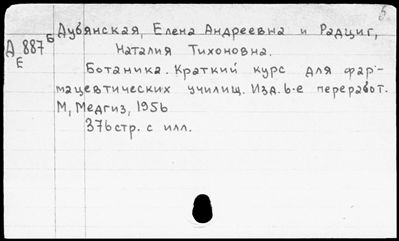 Дубянская, Елена Андреевна и Радциг,
Наталия Тихоновна.
Д 887 Б
Е
Ботаника. Краткий курс для фар-
мацевтических училищ. Изд. 6-е переработ.
М, Медгиз, 1956
376 стр. с илл.